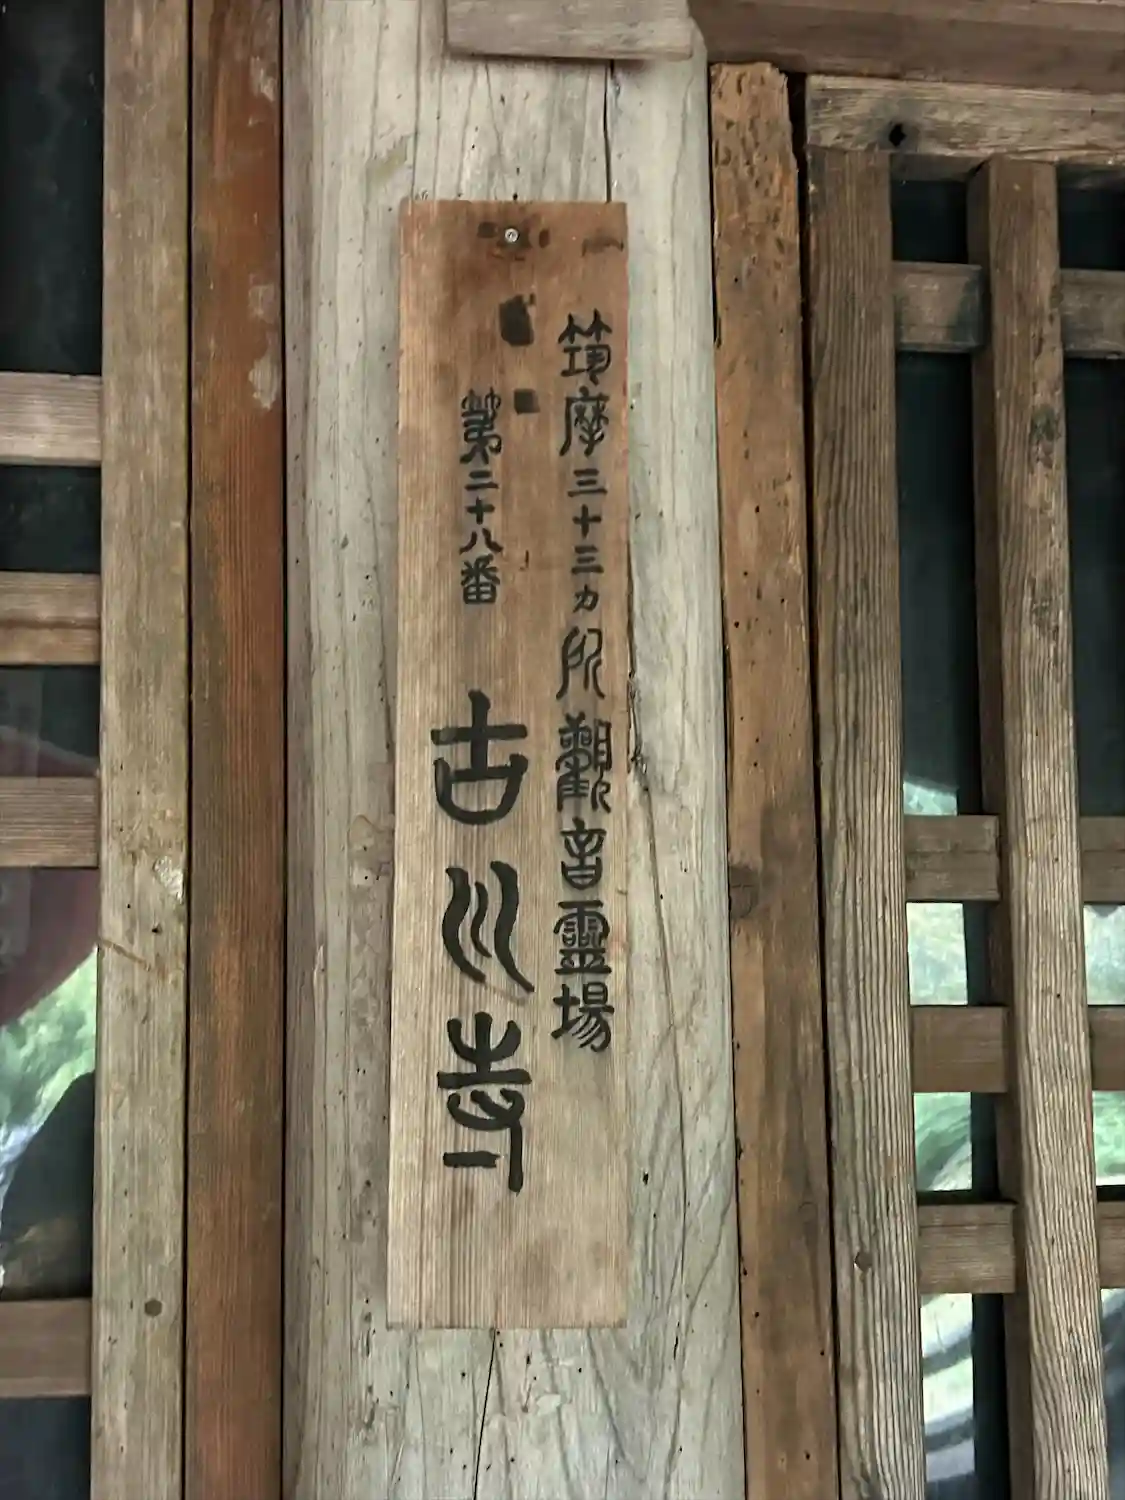 筑摩三十三カ所觀音靈場
第二十八番 古川寺